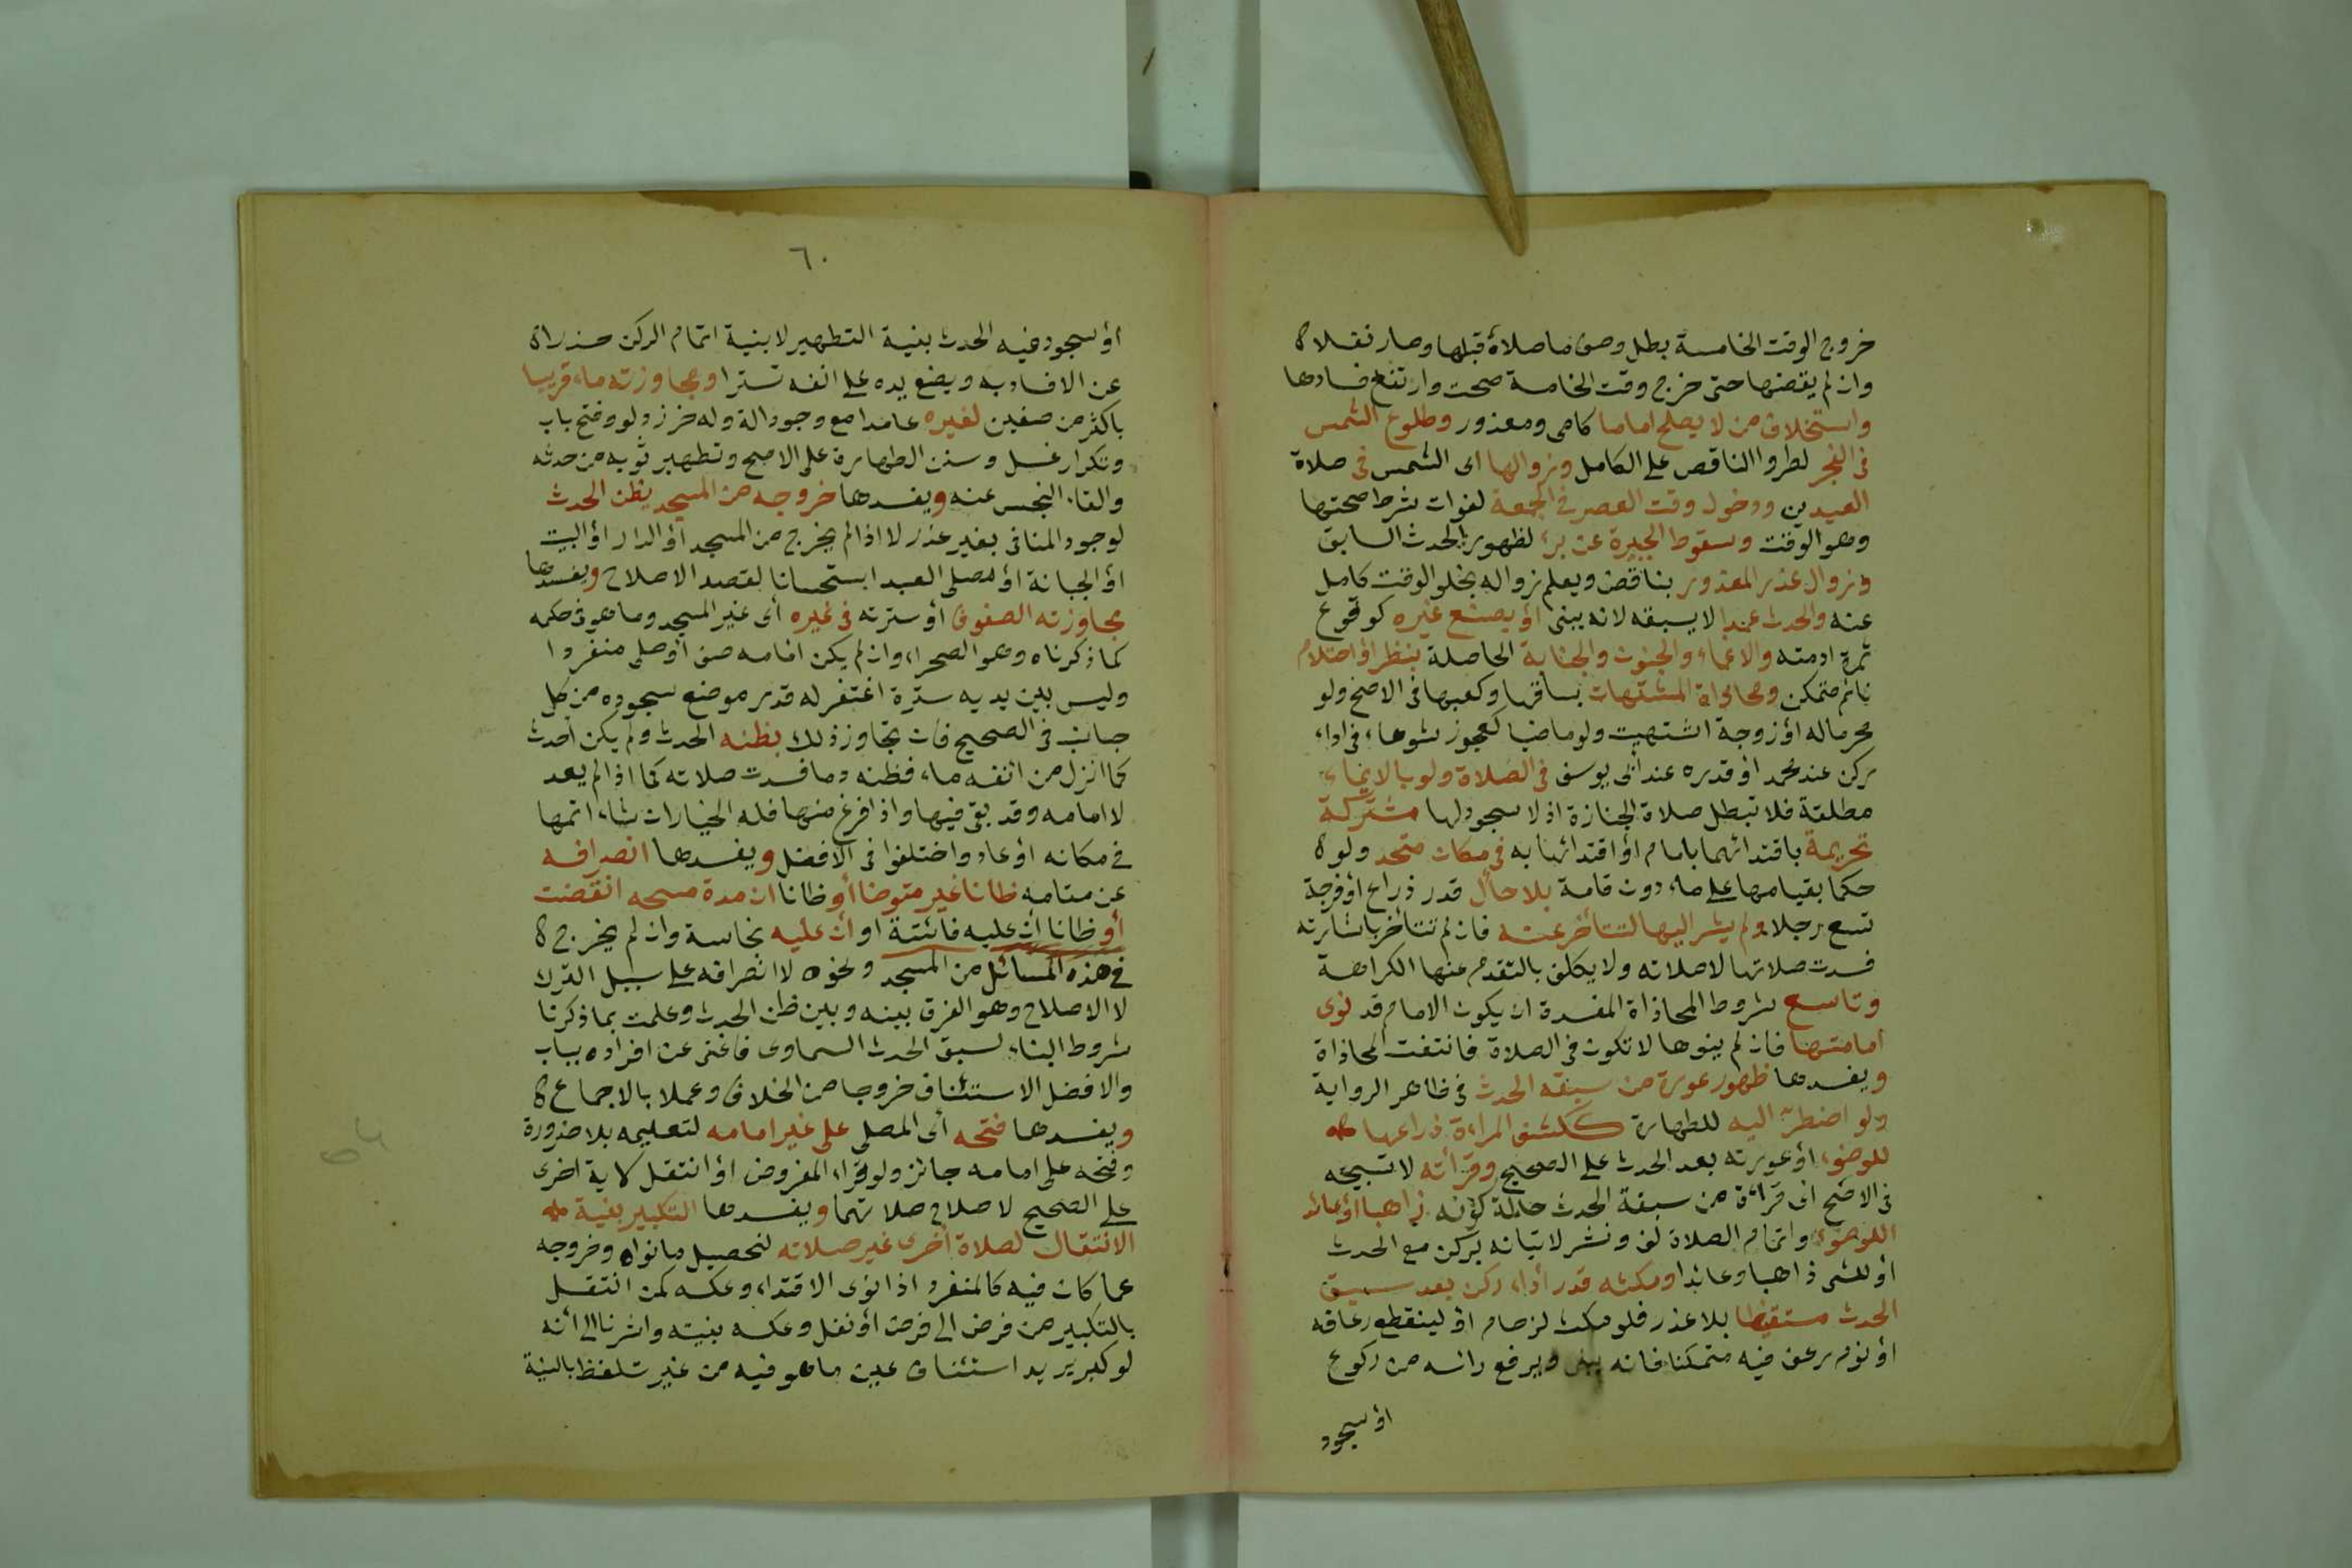 خروج الوقت الخامسة بطل وصف ما صلاه قبلها وصار نفلا ه
وان لم يقضها حتى خرج وقت الخامسة صحت وارتفع فسادها
واستخلاف من لا يصلح اماما كامى ومعذور وطلوع الشمس
فى الفجر لطروا الناقص على الكامل وزوالها اى الشمس فى صلاة
العيدين ودخول وقت العصر فى الجمعة لفوات شرط صحتها
وهو الوقت وسقوط الجبيرة عن برء لظهور الحدث السابق
وزوال عذر المعذور بناقض ويعلم زواله بخلو الوقت كامل
عنه والحدث عمدا لا بسبقه لانه يبنى أو بصنع غيره كوقوع
ثمرة ادمته والاغماء والجنون والجنابة الحاصلة بنظر أو احتلام
نائم متمكن ومحاذاة المشتهات بساقها وكعبها فى الاصح ولو
محرما له أو زوجة اشتهيت ولو ماضيا كعجوز شوهاء فى اداء
ركن عند محمد أو قدره عند أبى يوسف فى الصلاة ولو بالايماء
مطلقة فلا تبطل صلاة الجنازة اذ لا سجود لها مشتركة
تحريمة باقتدائهما بامام أو اقتدائها به فى مكان متحد ولو ه
حكما بقيامها على ماء دون قامة بلا حائل قدر ذراع أو فرجة
تسع رجلا ولم يشر اليها لتتأخر عنه فان لم تتأخر باشارته
فسدت صلاتها لا صلاته ولا يكلف بالتقدم عنها الكراهة
وتاسع شروط المحاذاة المفسدة ان يكون الامام قد نوى
امامتها فان لم ينوها لا تكون فى الصلاة فانتفت المحاذاة
ويفسدها ظهور عورة من سبقه الحدث فى ظاهر الرواية
ولو اضطر اليه للطهارة ككشف المراءة ذراعها
للوضوء أو عورته بعد الحدث على الصحيح وقرأته لا تسبيحه
فى الاصح اى قرأة من سبقة الحدث حالة كونه ذاهبا أو عائد
اللوضوء واتمام الصلاة لف ونشر لاتيانه بركن مع الحدث
أو المشى ذاهبا وعائدا ومكثه قدر أداء ركن بعد سبق
الحدث مستقيظا بلا عذر فلو مكث لزحام أو لينقطع رعافه
أو نوم رعف فيه متمكنا فانه يبنى ويرفع راسه من ركوع
أو سجود
٦٠
أو سجود فيه الحدث بنية التطهير لا بنية اتمام الركن حذرا ه
عن الافساد به ويضع يده على انفه تسترا ومجاوزته ماء قريبا
باكثر من صفين لغيره عامدا مع وجود الة وله خرز دلو وفتح باب
وتكرار غسل وسنن الطهارة على الاصح وتطهير ثوبه من حدثه
والقاء النجس عنه ويفسدها خروجه من المسجد يظن الحدث
لوجود المنافى بغير عذر لا اذا لم يخرج من المسجد أو الدار أو البيت
أو الجبانة أو مصلى العيد استحسانا لقصد الاصلاح ويفسدها
بجاوزته الصفوف أو سترته فى غيره أى غير المسجد وما هو فى حكمه
كما ذكرناه وهو الصحراء وان لم يكن امامه صف أو صلى منفردا
وليس بين يديه سترة اغتفر له قدر موضع سجوده من كل
جانب فى الصحيح فان تجاوز ذلك بظنه الحدث ولم يكن أحدث
كما انزل من انفه ماء فظنه دما فسدت صلاته كما اذا لم يعد
لا امامه وقد بقى فيها واذا فرغ منها فله الخيار ان شاء اتمها
فى مكانه أو عاد واختلفوا فى الافضل ويفسدها انصرافه
عن مقامه ظانا غير متوضا أو ظانا ان مدة مسحه انقضت
أو ظانا ان عليه فائتة او أن عليه نجاسة وان لم يخرج ه
فى هذه المسائل من المسجد ونحوه لا انصرافه على سبيل الترك
لا الاصلاح وهو الفرق بينه وبين ظن الحدث وعلمت بما ذكرنا
شروط البناء لسبق الحدث السماوى فاغنى عن افراده بباب
والافضل الاستئناف خروجا من الخلاف وعملا بالاجماع ه
ويفسدها فتحه أى المصلى على غير امامه لتعليمه بلا ضرورة
وفتحه على امامه جائز ولو قراء المفروض أو انتقل لاية اخرى
على الصحيح لاصلاح صلاتهما ويفسدها التكبير بنية
الانتقال لصلاة أخرى غير صلاته لتحصيل ما نواه وخروجه
عما كان فيه كالمنفرد اذا نوى الاقتداء وعكسه كمن انتقل
بالتكبير من فرض الى فرض أو نفل وعكسه بنيته واشرنا الى أنه
لو كبر يريد استئناف عين ما هو فيه من غير تلفظ بالنية